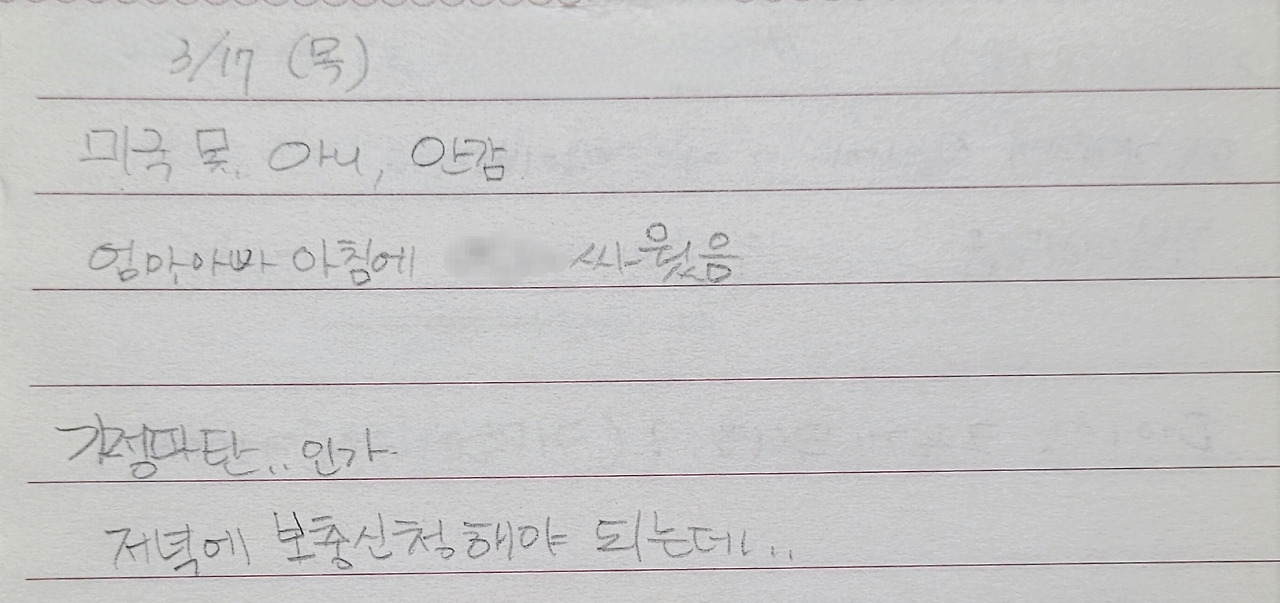 3/17 (목)
미국 못. 아니, 안감
엄마아빠 아침에 싸웠음
가정파탄.. 인가
저녁에 보충신청해야 되는데..